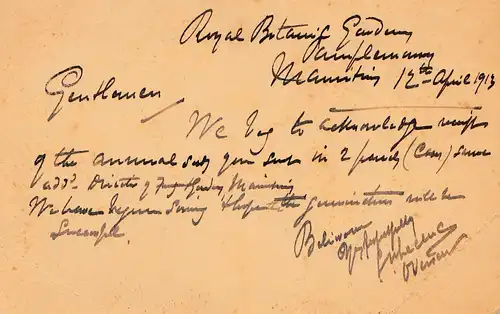 Royal Botanic Gardens
Pamplemousses
Mauritius 12th April 1913
Gentlemen
We beg to acknowledge receipt
of the annual seeds you sent in 2 parcels (Cans) same
add. Director of Gardens, Mauritius
We have begun sowing & hope the germination will be
Successful.
Believe me
Yrs respectfully